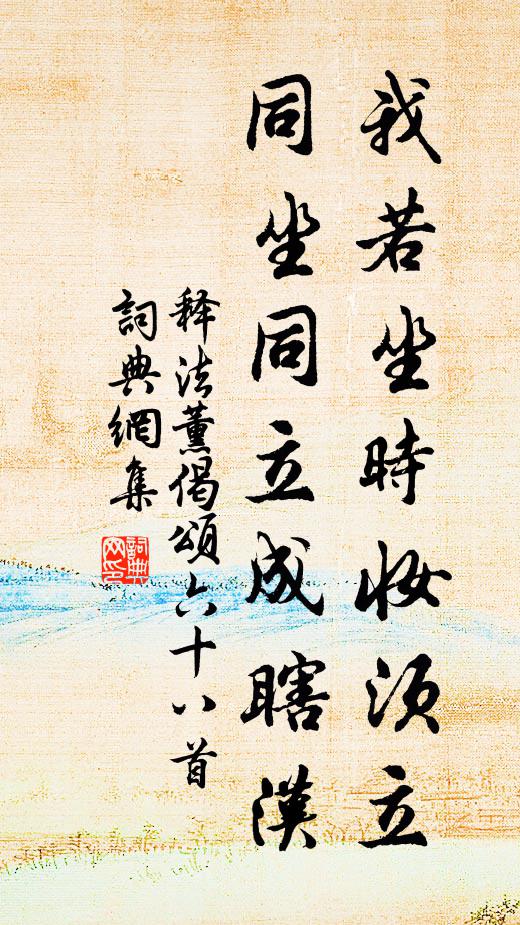 我若坐時妝須立
同坐同立成瞎漢
释法薰偈頌六十八首
詞典網集
詞典网印